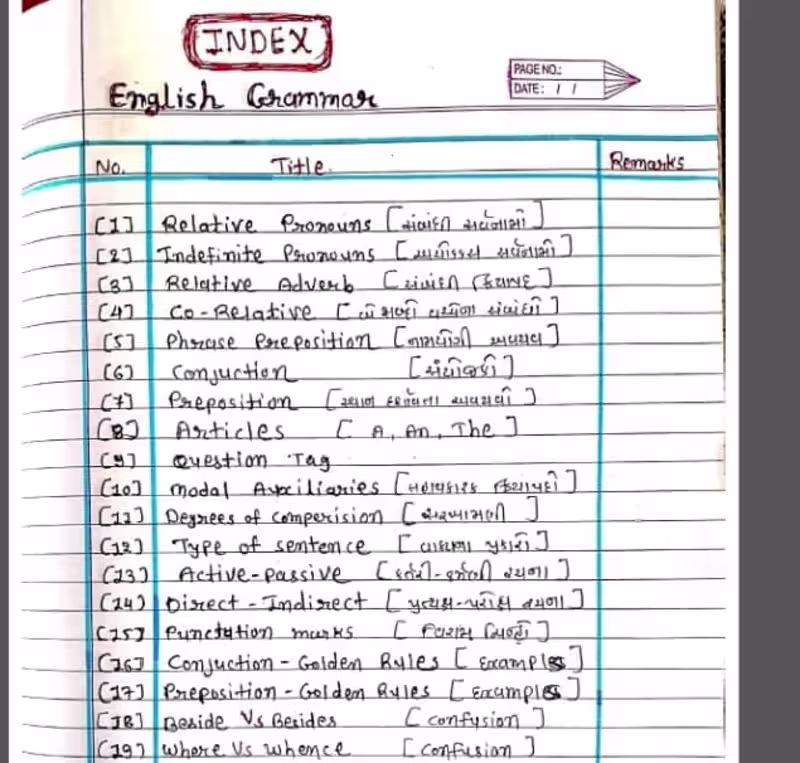 INDEX
English Grammar
PAGE NO.:
DATE: / /
No. Title. Remarks
[1] Relative Pronouns [સંબંધી સર્વનામો]
[2] Indefinite Pronouns [અનિશ્ચિત સર્વનામો]
[3] Relative Adverb [સંબંધી ક્રિયાપદ]
[4] Co-Relative [બે શબ્દો વચ્ચેના સંબંધી]
[5] Phrase Preposition [નામયોગી અવયવ]
[6] Conjuction [સંયોજકો]
[7] Preposition [સ્થાન દર્શાવતા અવયવો]
[8] Articles [A, An, The]
[9] Question Tag
[10] Modal Auxiliaries [સહાયકારક ક્રિયાપદો]
[11] Degrees of comperision [સરખામણી]
[12] Type of sentence [વાક્યના પ્રકારો]
[13] Active-passive [કર્તરી-કર્મણી રચના]
[14] Direct-Indirect [પ્રત્યક્ષ-પરોક્ષ રચના]
[15] Punctution marks [વિરામ ચિહ્નો]
[16] Conjuction - Golden Rules [Examples]
[17] Preposition - Golden Rules [Examples]
[18] Beside Vs Besides [confusion]
[19] Where Vs Whence [confusion]